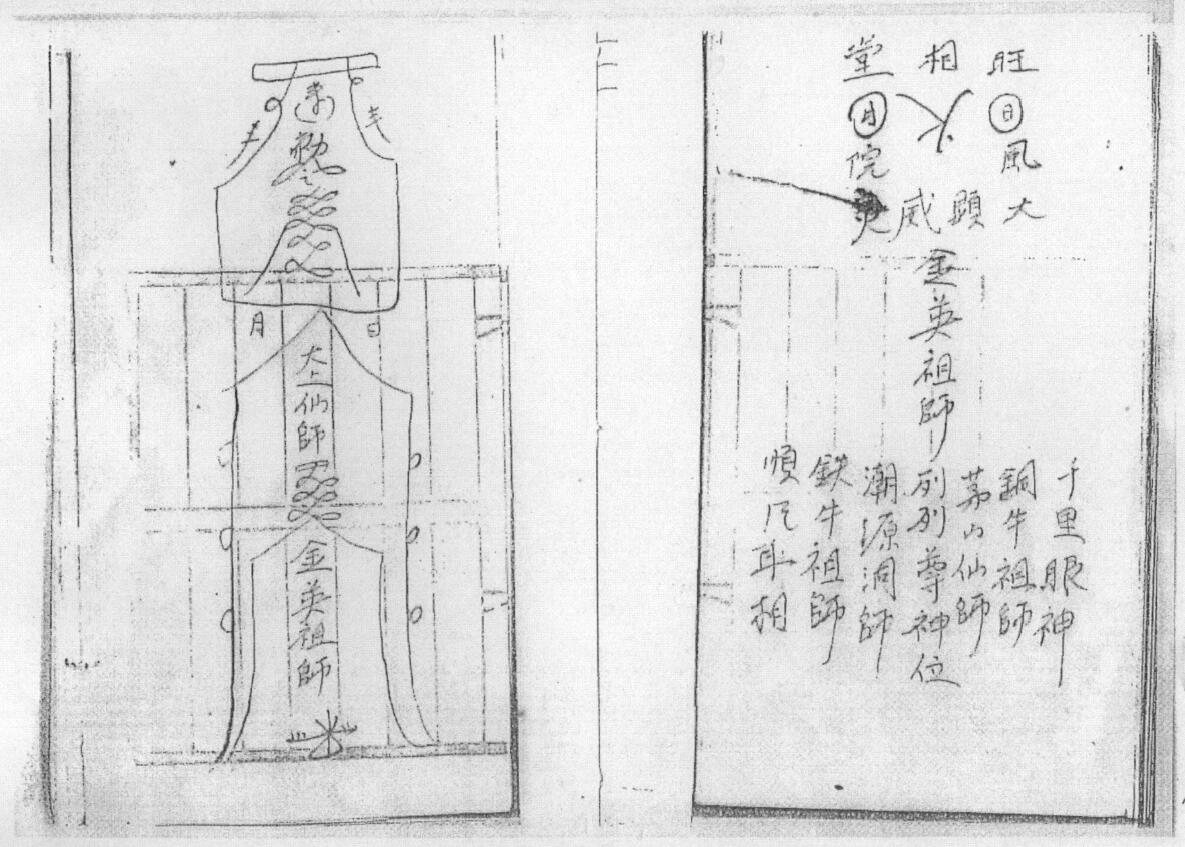 旺 相 堂
日 月
風 火 院
大 顯 威 灵
金英祖師列列尊神位
千里眼神
銅牛祖師
茅山仙師
潮源洞師
鉄牛祖師
順尺耳相
勅令
月 日
大上仙師
金英祖師